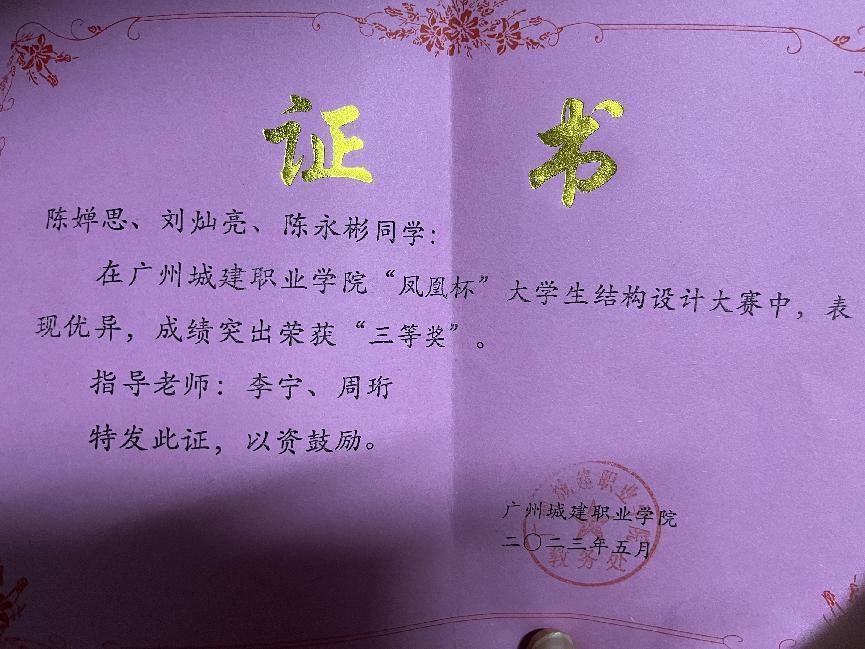 证书
陈婵思、刘灿亮、陈永彬同学：
在广州城建职业学院“凤凰杯”大学生结构设计大赛中，表
现优异，成绩突出荣获“三等奖”。
指导老师：李宁、周珩
特发此证，以资鼓励。
广州城建职业学院
二〇二三年五月
城建职业学院
教务处